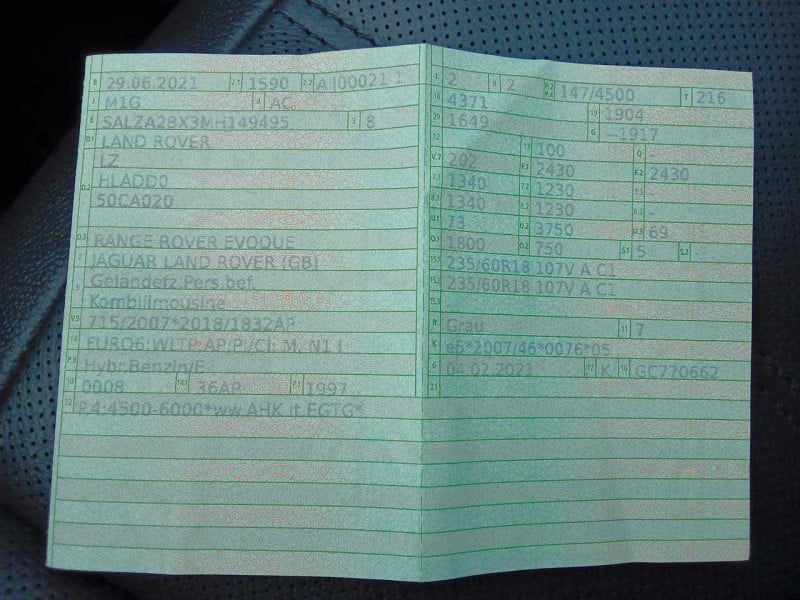 B 29.06.2021 2.1 1590 2.2 AJI00021 1
J M1G 4 AC
E SALZA2BX3MH149495 3 8
D.1 LAND ROVER
LZ
D.2 HLADD0
50CA020
D.3 RANGE ROVER EVOQUE
2 JAGUAR LAND ROVER (GB)
5 Geländefz.Pers.bef.
Kombilimousine
V.9 715/2007*2018/1832AP
14 EURO6;WLTP;AP;PI/CI; M, N1 I
P.3 Hybr.Benzin/E
10 0008 14.1 36AP P.1 1997
22 P.4:4500-6000*ww.AHK lt.EGTG*
L 2 9 2 P.2 P.4 147/4500 T 216
18 4371 19 1904
20 1649 G --1917
12 13 100 Q -
V.7 202 F.1 2430 F.2 2430
7.1 1340 7.2 1230 7.3 -
8.1 1340 8.2 1230 8.3 -
U.1 73 U.2 3750 U.3 69
O.1 1800 O.2 750 S.1 5 S.2 -
15.1 235/60R18 107V A C1
15.2 235/60R18 107V A C1
15.3 -
R Grau 11 7
K e5*2007/46*0076*05
6 04.02.2021 17 K 16 GC770662
21